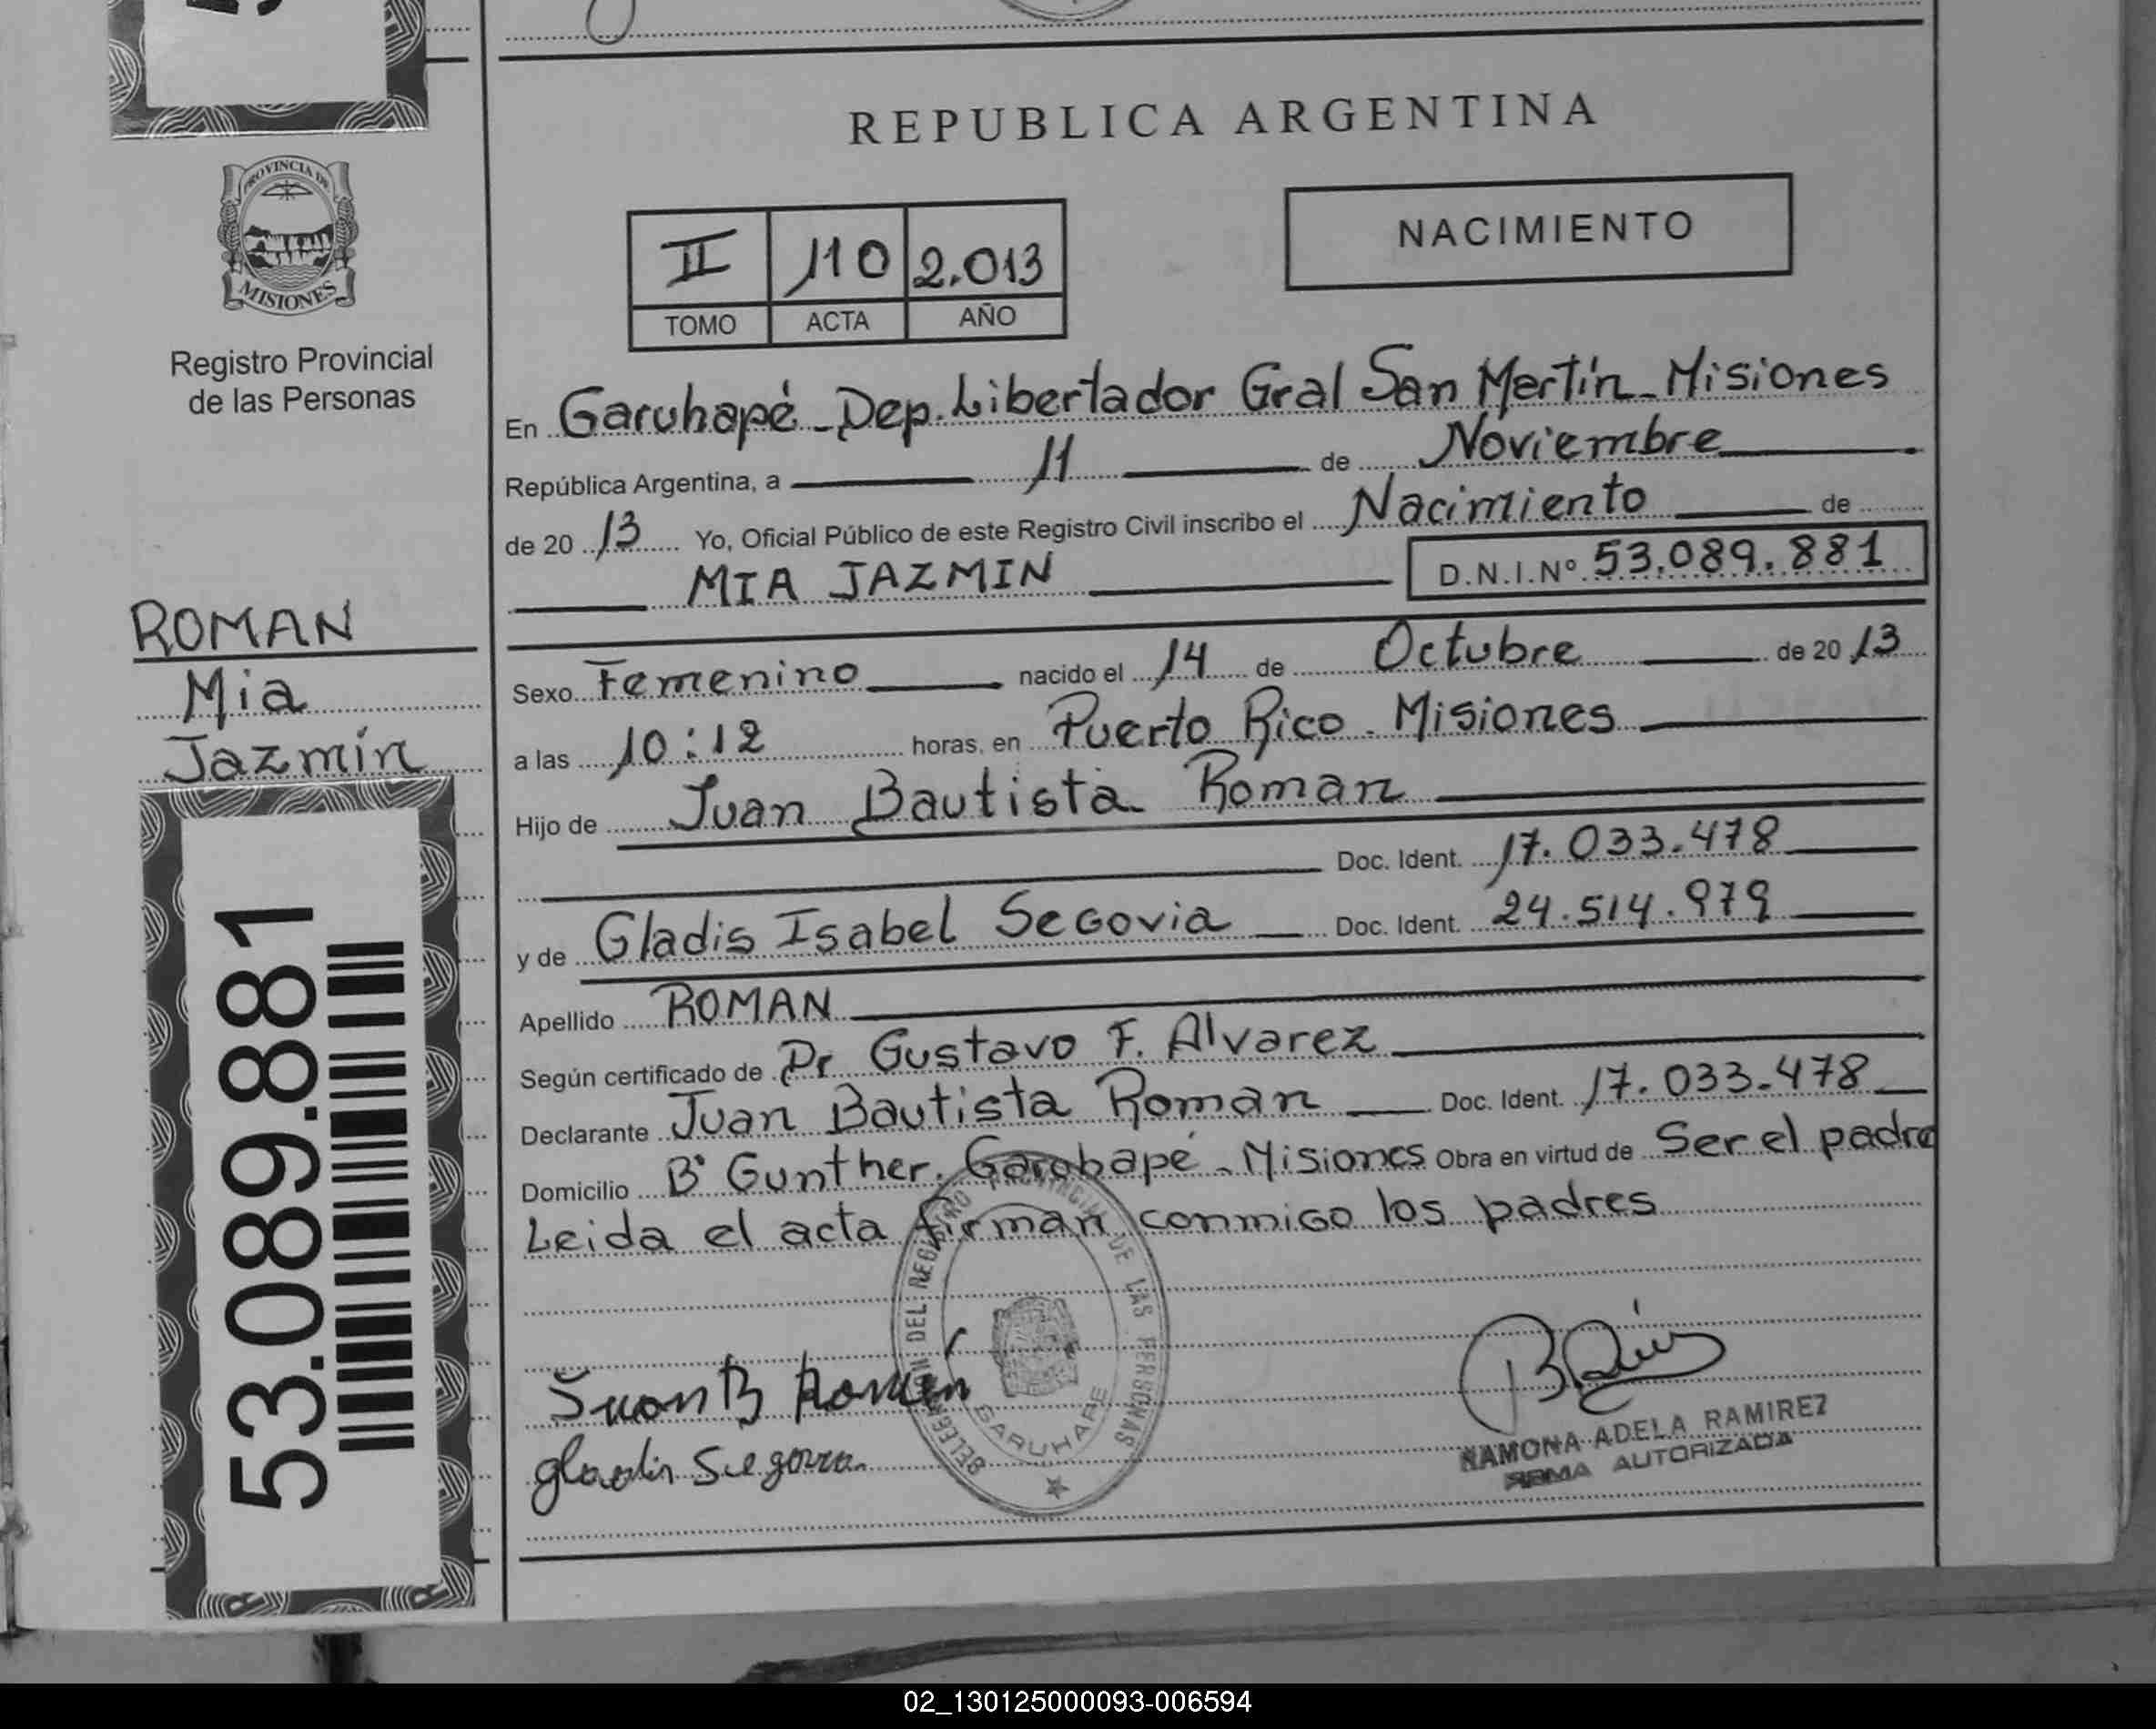 REPUBLICA ARGENTINA
PROVINCIA DE
MISIONES
Registro Provincial
de las Personas
II 110 2.013
TOMO ACTA AÑO
NACIMIENTO
En Garuhapé - Dep. Libertador Gral San Martín - Misiones
República Argentina, a 11 de Noviembre
de 20 13 Yo, Oficial Público de este Registro Civil inscribo el Nacimiento de
MIA JAZMIN D.N.I.Nº 53.089.881
ROMAN
Mia
Jazmín
Sexo Femenino nacido el 14 de Octubre de 20 13
a las 10:12 horas, en Puerto Rico - Misiones
Hijo de Juan Bautista Roman
Doc. Ident. 17.033.478
y de Gladis Isabel Segovia Doc. Ident. 24.514.979
Apellido ROMAN
Según certificado de Dr Gustavo F. Alvarez
Declarante Juan Bautista Roman Doc. Ident. 17.033.478
Domicilio Bº Gunther. Garuhapé - Misiones Obra en virtud de Ser el padre
Leida el acta firman conmigo los padres
53.089.881
DEL REGISTRO PROVINCIAL DE LAS PERSONAS
GARUHAPE
Juan B Román
Gladis Segovia
RAMONA ADELA RAMIREZ
FIRMA AUTORIZADA
02_130125000093-006594